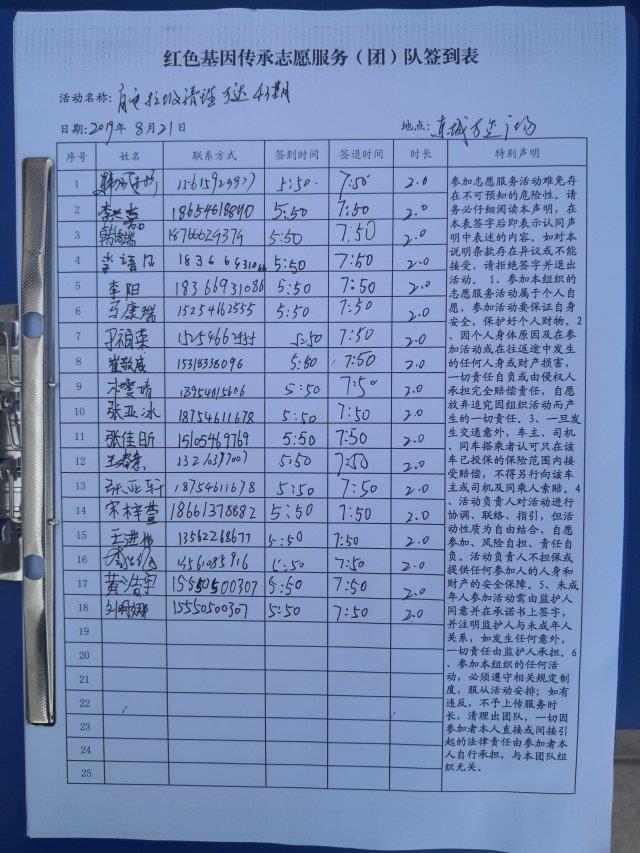 红色基因传承志愿服务（团）队签到表
活动名称：
日期：2019年 8月21日 地点：
序号 姓名 联系方式 签到时间 签退时间 时长 特别声明
1 5:50 7:50 2.0
2 18654618840 5:50 7:50 2.0
3 18766629379 5:50 7:50 2.0
4 5:50 7:50 2.0
5 李阳 18366931086 5:50 7:50 2.0
6 马康瑞 15254662555 5:50 7:50 2.0
7 5:50 7:50 2.0
8 15318338096 5:50 7:50 2.0
9 18954015606 5:50 7:50 2.0
10 张亚冰 18754611678 5:50 7:50 2.0
11 张佳昕 15105469769 5:50 7:50 2.0
12 5:50 7:50 2.0
13 张亚轩 18754611678 5:50 7:50 2.0
14 18661378882 5:50 7:50 2.0
15 13562268677 5:50 7:50 2.0
16 5:50 7:50 2.0
17 黄浩宇 15550500307 5:50 7:50 2.0
18 15550500307 5:50 7:50 2.0
19
20
21
22
23
24
25
参加志愿服务活动难免存
在不可预知的危险性。请
务必仔细阅读本声明，在
本表签字后即表示认同声
明中表述的内容。如对本
说明条款存在异议或不能
接受，请拒绝签字并退出
活动。 1、参加本组织的
志愿服务活动属于个人自
愿，参加活动要保证自身
安全，保护好个人财物。2
、因个人身体原因及在参
加活动或在往返途中发生
的任何人身或财产损害，
一切责任自负或由侵权人
承担完全赔偿责任，自愿
放弃追究因组织活动而产
生的一切责任。3、一旦发
生交通意外，车主、司机
、同车搭乘者认可只在该
车已投保的保险范围内接
受赔偿，不得另行向该车
主或司机及同乘人索赔。4
、活动负责人对活动进行
协调、联络、指引，但活
动性质为自由结合、自愿
参加、风险自担、责任自
负。活动负责人不担保或
提供任何参加人的人身和
财产的安全保障。5、未成
年人参加活动需由监护人
同意并在承诺书上签字，
并注明监护人与未成年人
关系，如发生任何意外，
一切责任由监护人承担。6
、参加本组织的任何活
动，必须遵守相关规定制
度，服从活动安排；如有
违反，不予上传服务时
长，清理出团队，一切因
参加者本人直接或间接引
起的法律责任由参加者本
人自行承担，与本团队组
织无关。